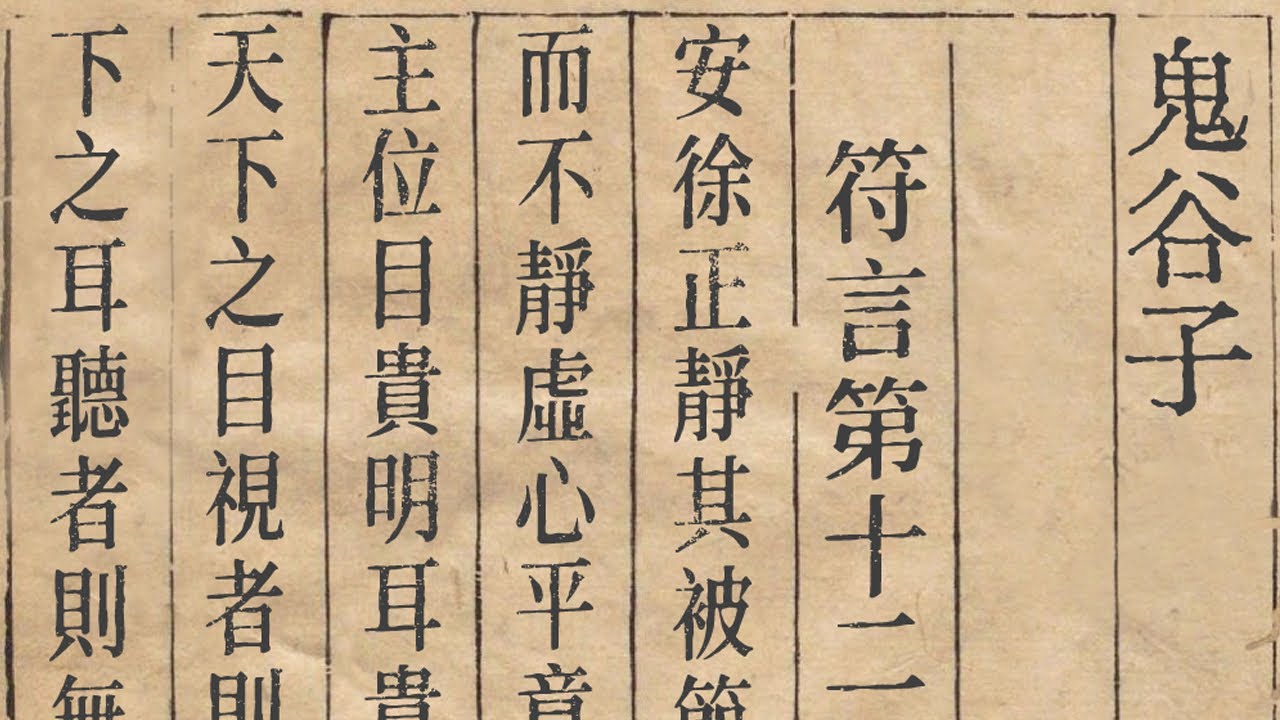 鬼谷子
符言第十二
安徐正靜其被節
而不靜虛心平意
主位目貴明耳貴
天下之目視者則
下之耳聽者則無